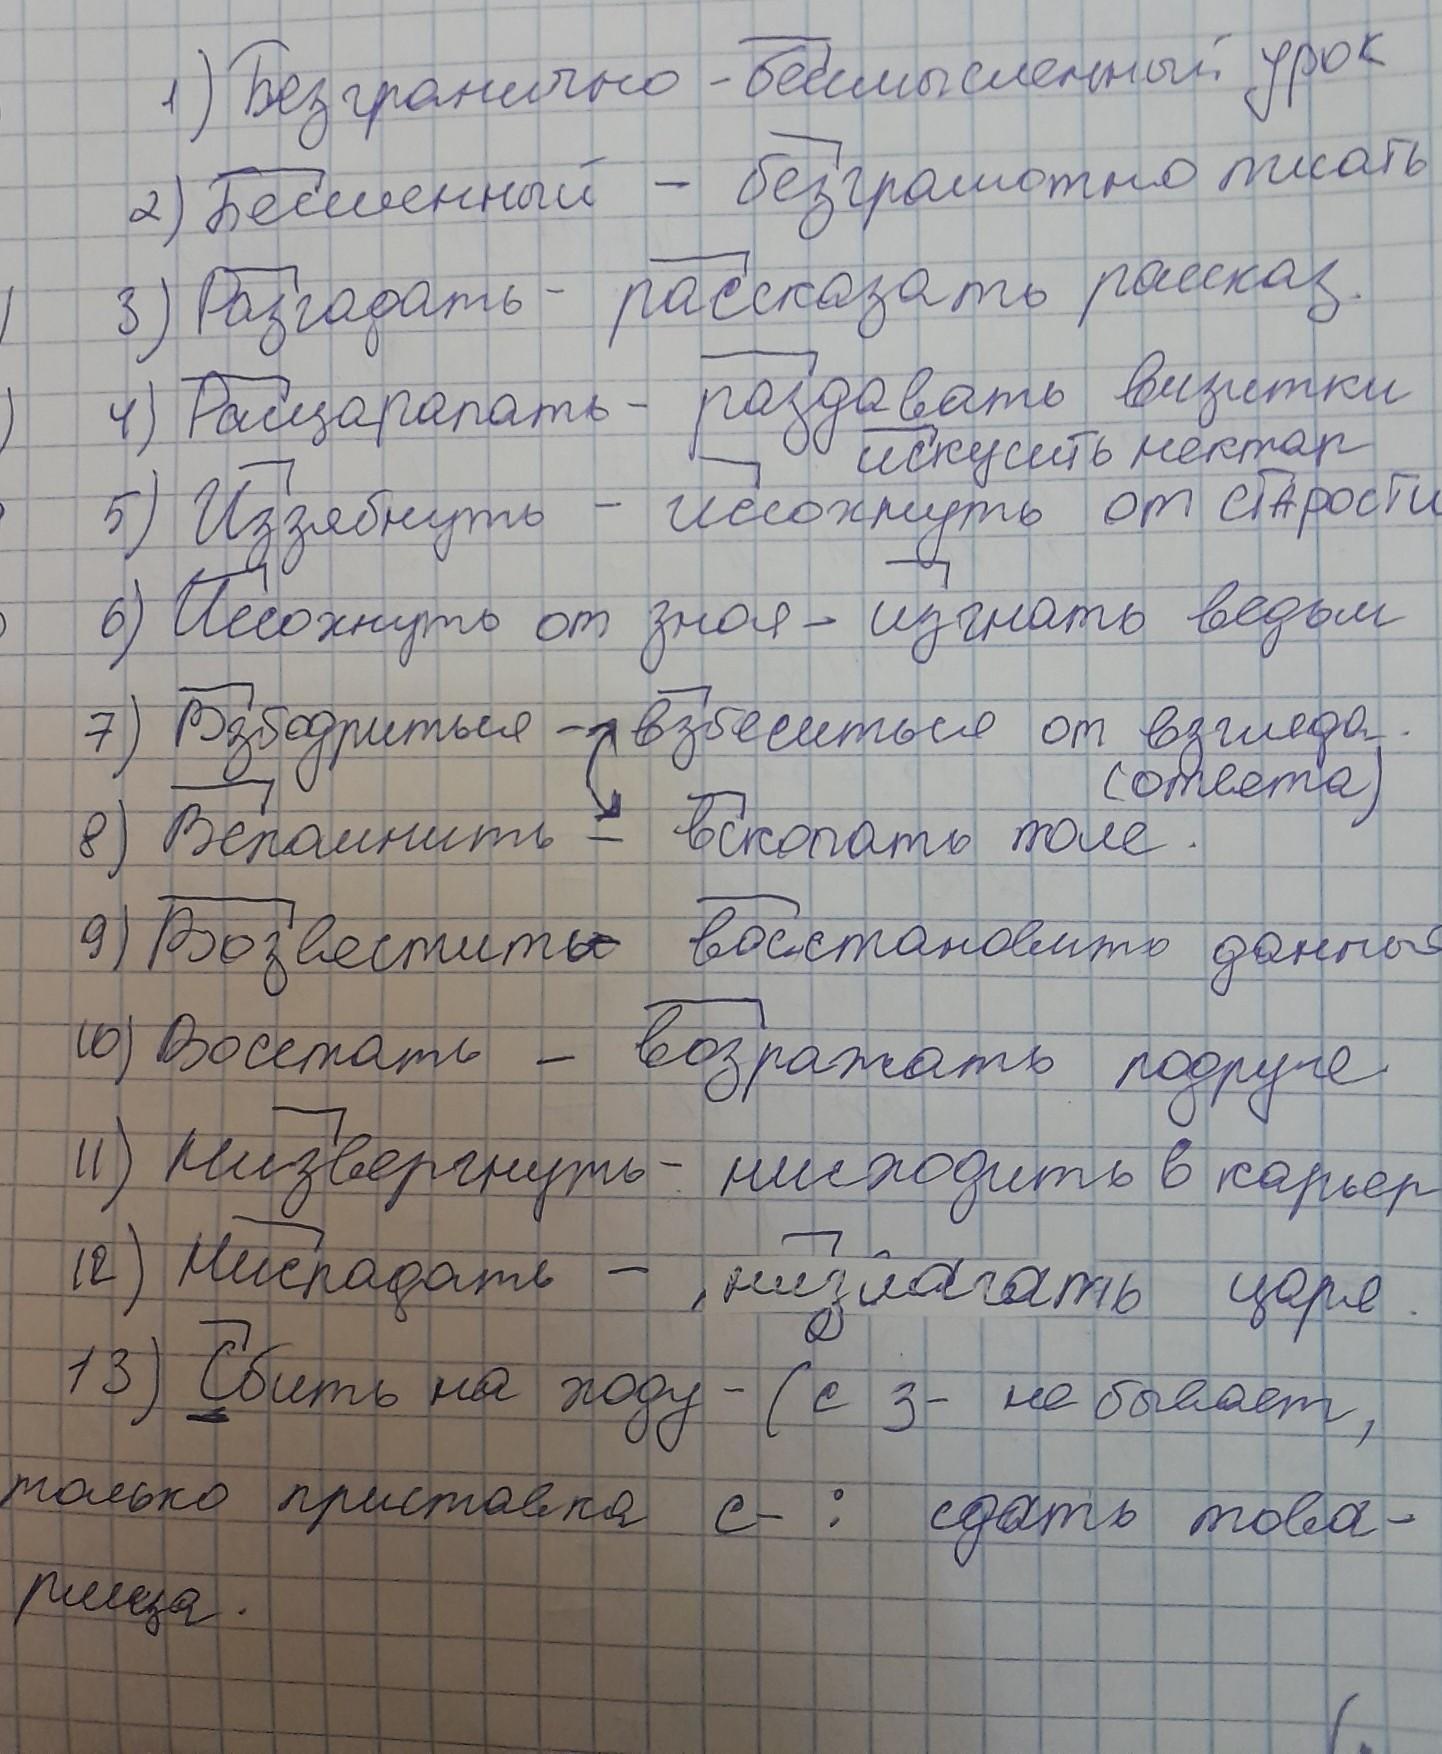 1) Безгранично - бессмысленный урок
2) Бессменный - безграмотно писать
3) Разгадать - рассказать рассказ.
4) Расцарапать - раздавать визитки
искусить нектар
5) Иззябнуть - иссохнуть от старости
6) Иссохнуть от зноя - изгнать ведьм
7) Взбодриться - взбеситься от взгляда.
(ответа)
8) Вспомнить - вскопать поле.
9) Возвестить восстановить данные
10) Восстать - возражать подруге
11) Низвергнуть - нисходить в карьер
12) Ниспадать - низлагать царя.
13) Сбить на ходу - (с з- не бывает,
только приставка с- : сдать това-
рища.